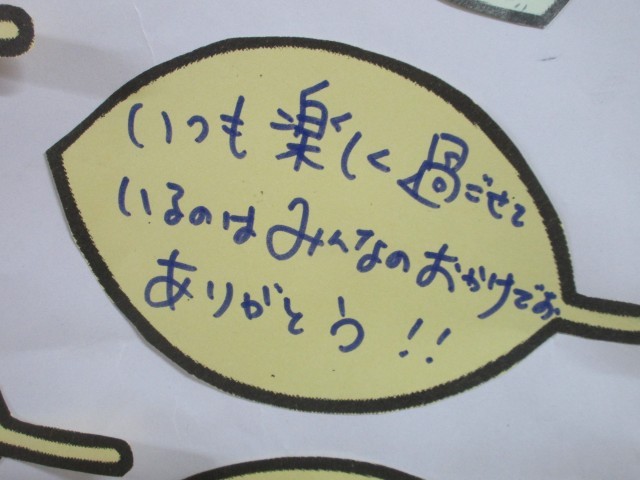 いつも楽しく過ごせて
いるのはみんなのおかけでお
ありがとう!!